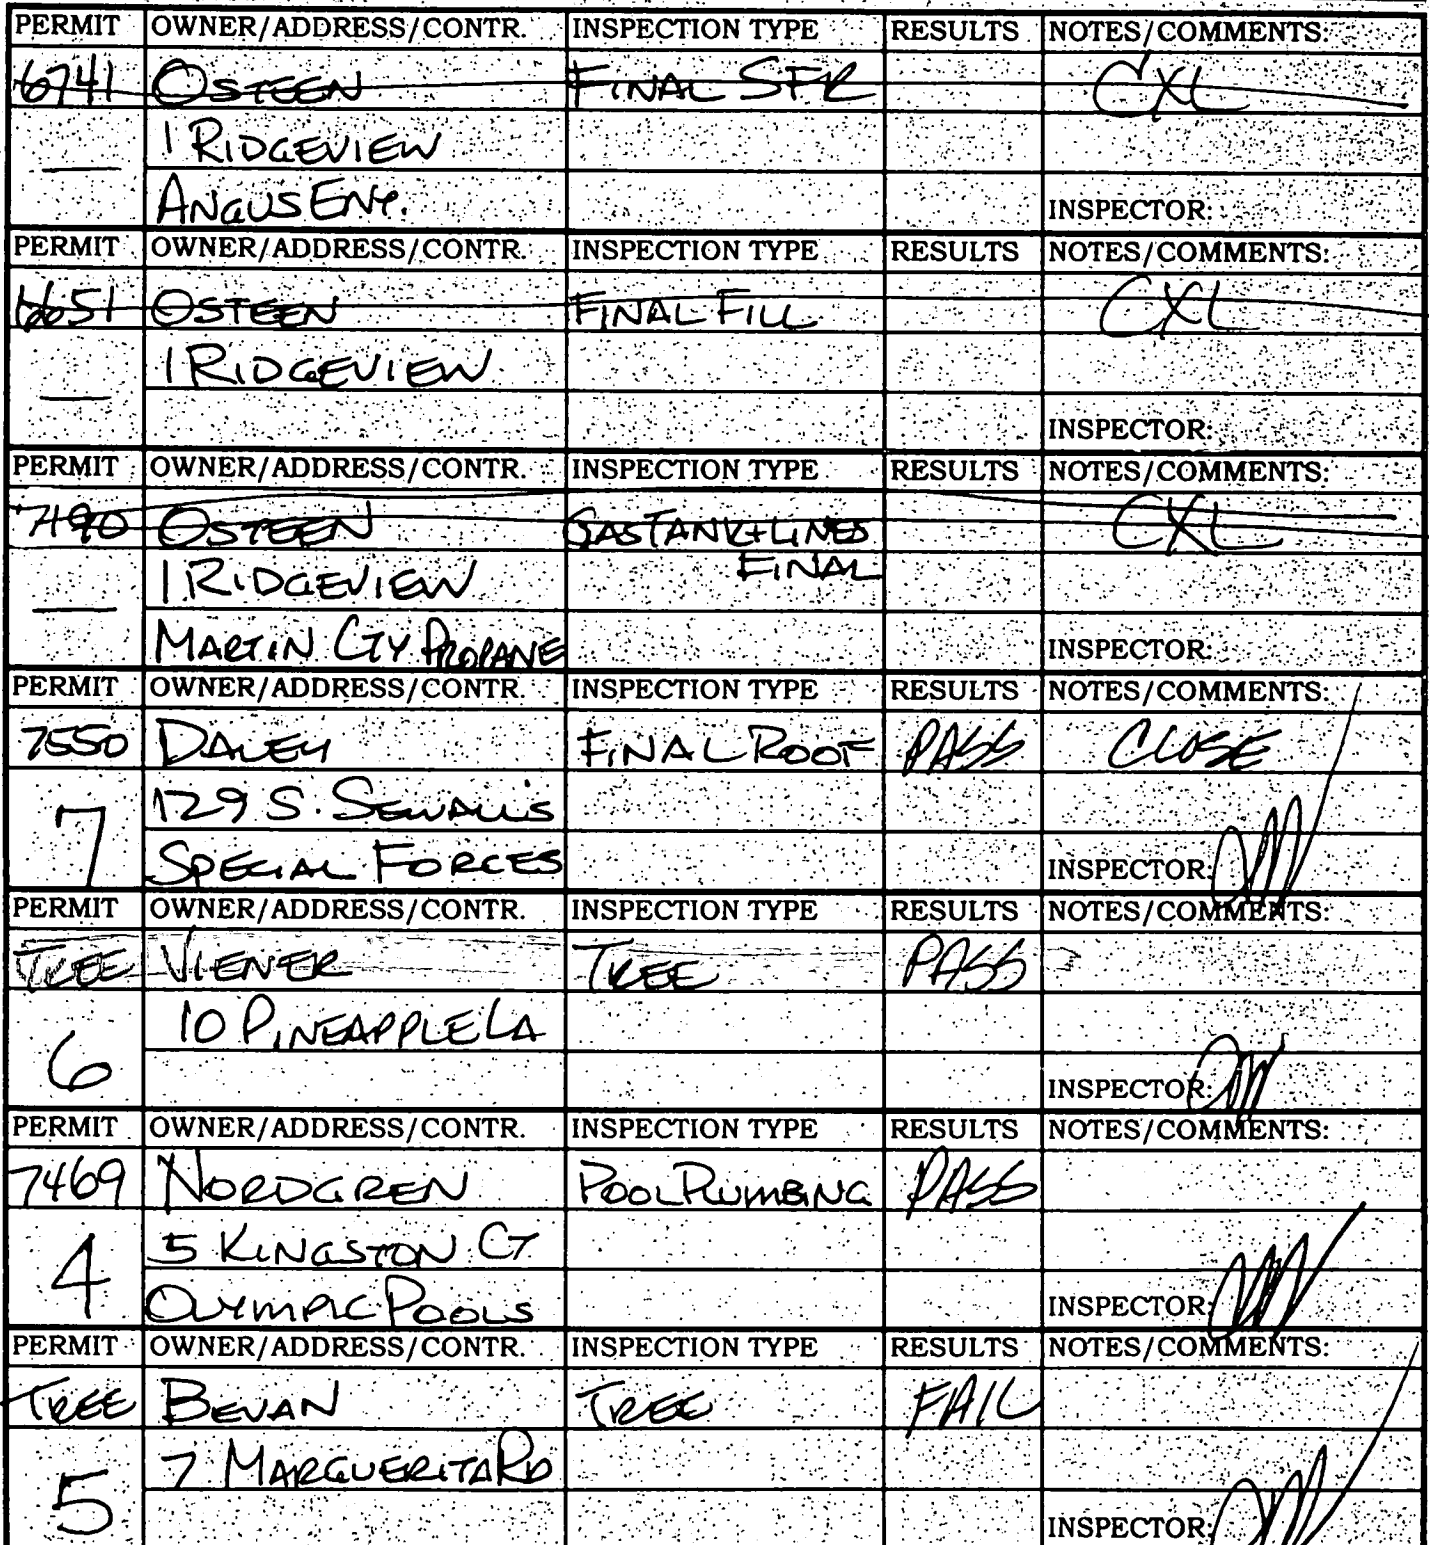 PERMIT OWNER/ADDRESS/CONTR. INSPECTION TYPE RESULTS NOTES/COMMENTS:
6741 OSTEEN FINAL SFR CXL
— 1 RIDGEVIEW
ANGUS ENT. INSPECTOR:
PERMIT OWNER/ADDRESS/CONTR. INSPECTION TYPE RESULTS NOTES/COMMENTS:
6651 OSTEEN FINAL FILL CXL
— 1 RIDGEVIEW
INSPECTOR:
PERMIT OWNER/ADDRESS/CONTR. INSPECTION TYPE RESULTS NOTES/COMMENTS:
7490 OSTEEN GAS TANK+LINES CXL
— 1 RIDGEVIEW FINAL
MARTIN CTY PROPANE INSPECTOR:
PERMIT OWNER/ADDRESS/CONTR. INSPECTION TYPE RESULTS NOTES/COMMENTS:
7550 DALEY FINAL ROOF PASS CLOSE
7 129 S. SEWALL'S
SPECIAL FORCES INSPECTOR:
PERMIT OWNER/ADDRESS/CONTR. INSPECTION TYPE RESULTS NOTES/COMMENTS:
TREE VIENER TREE PASS
6 10 PINEAPPLE LA
INSPECTOR:
PERMIT OWNER/ADDRESS/CONTR. INSPECTION TYPE RESULTS NOTES/COMMENTS:
7469 NORDGREN POOL PLUMBING PASS
4 5 KINGSTON CT
OLYMPIC POOLS INSPECTOR:
PERMIT OWNER/ADDRESS/CONTR. INSPECTION TYPE RESULTS NOTES/COMMENTS:
TREE BEVAN TREE FAIL
5 7 MARGUERITA RD
INSPECTOR: